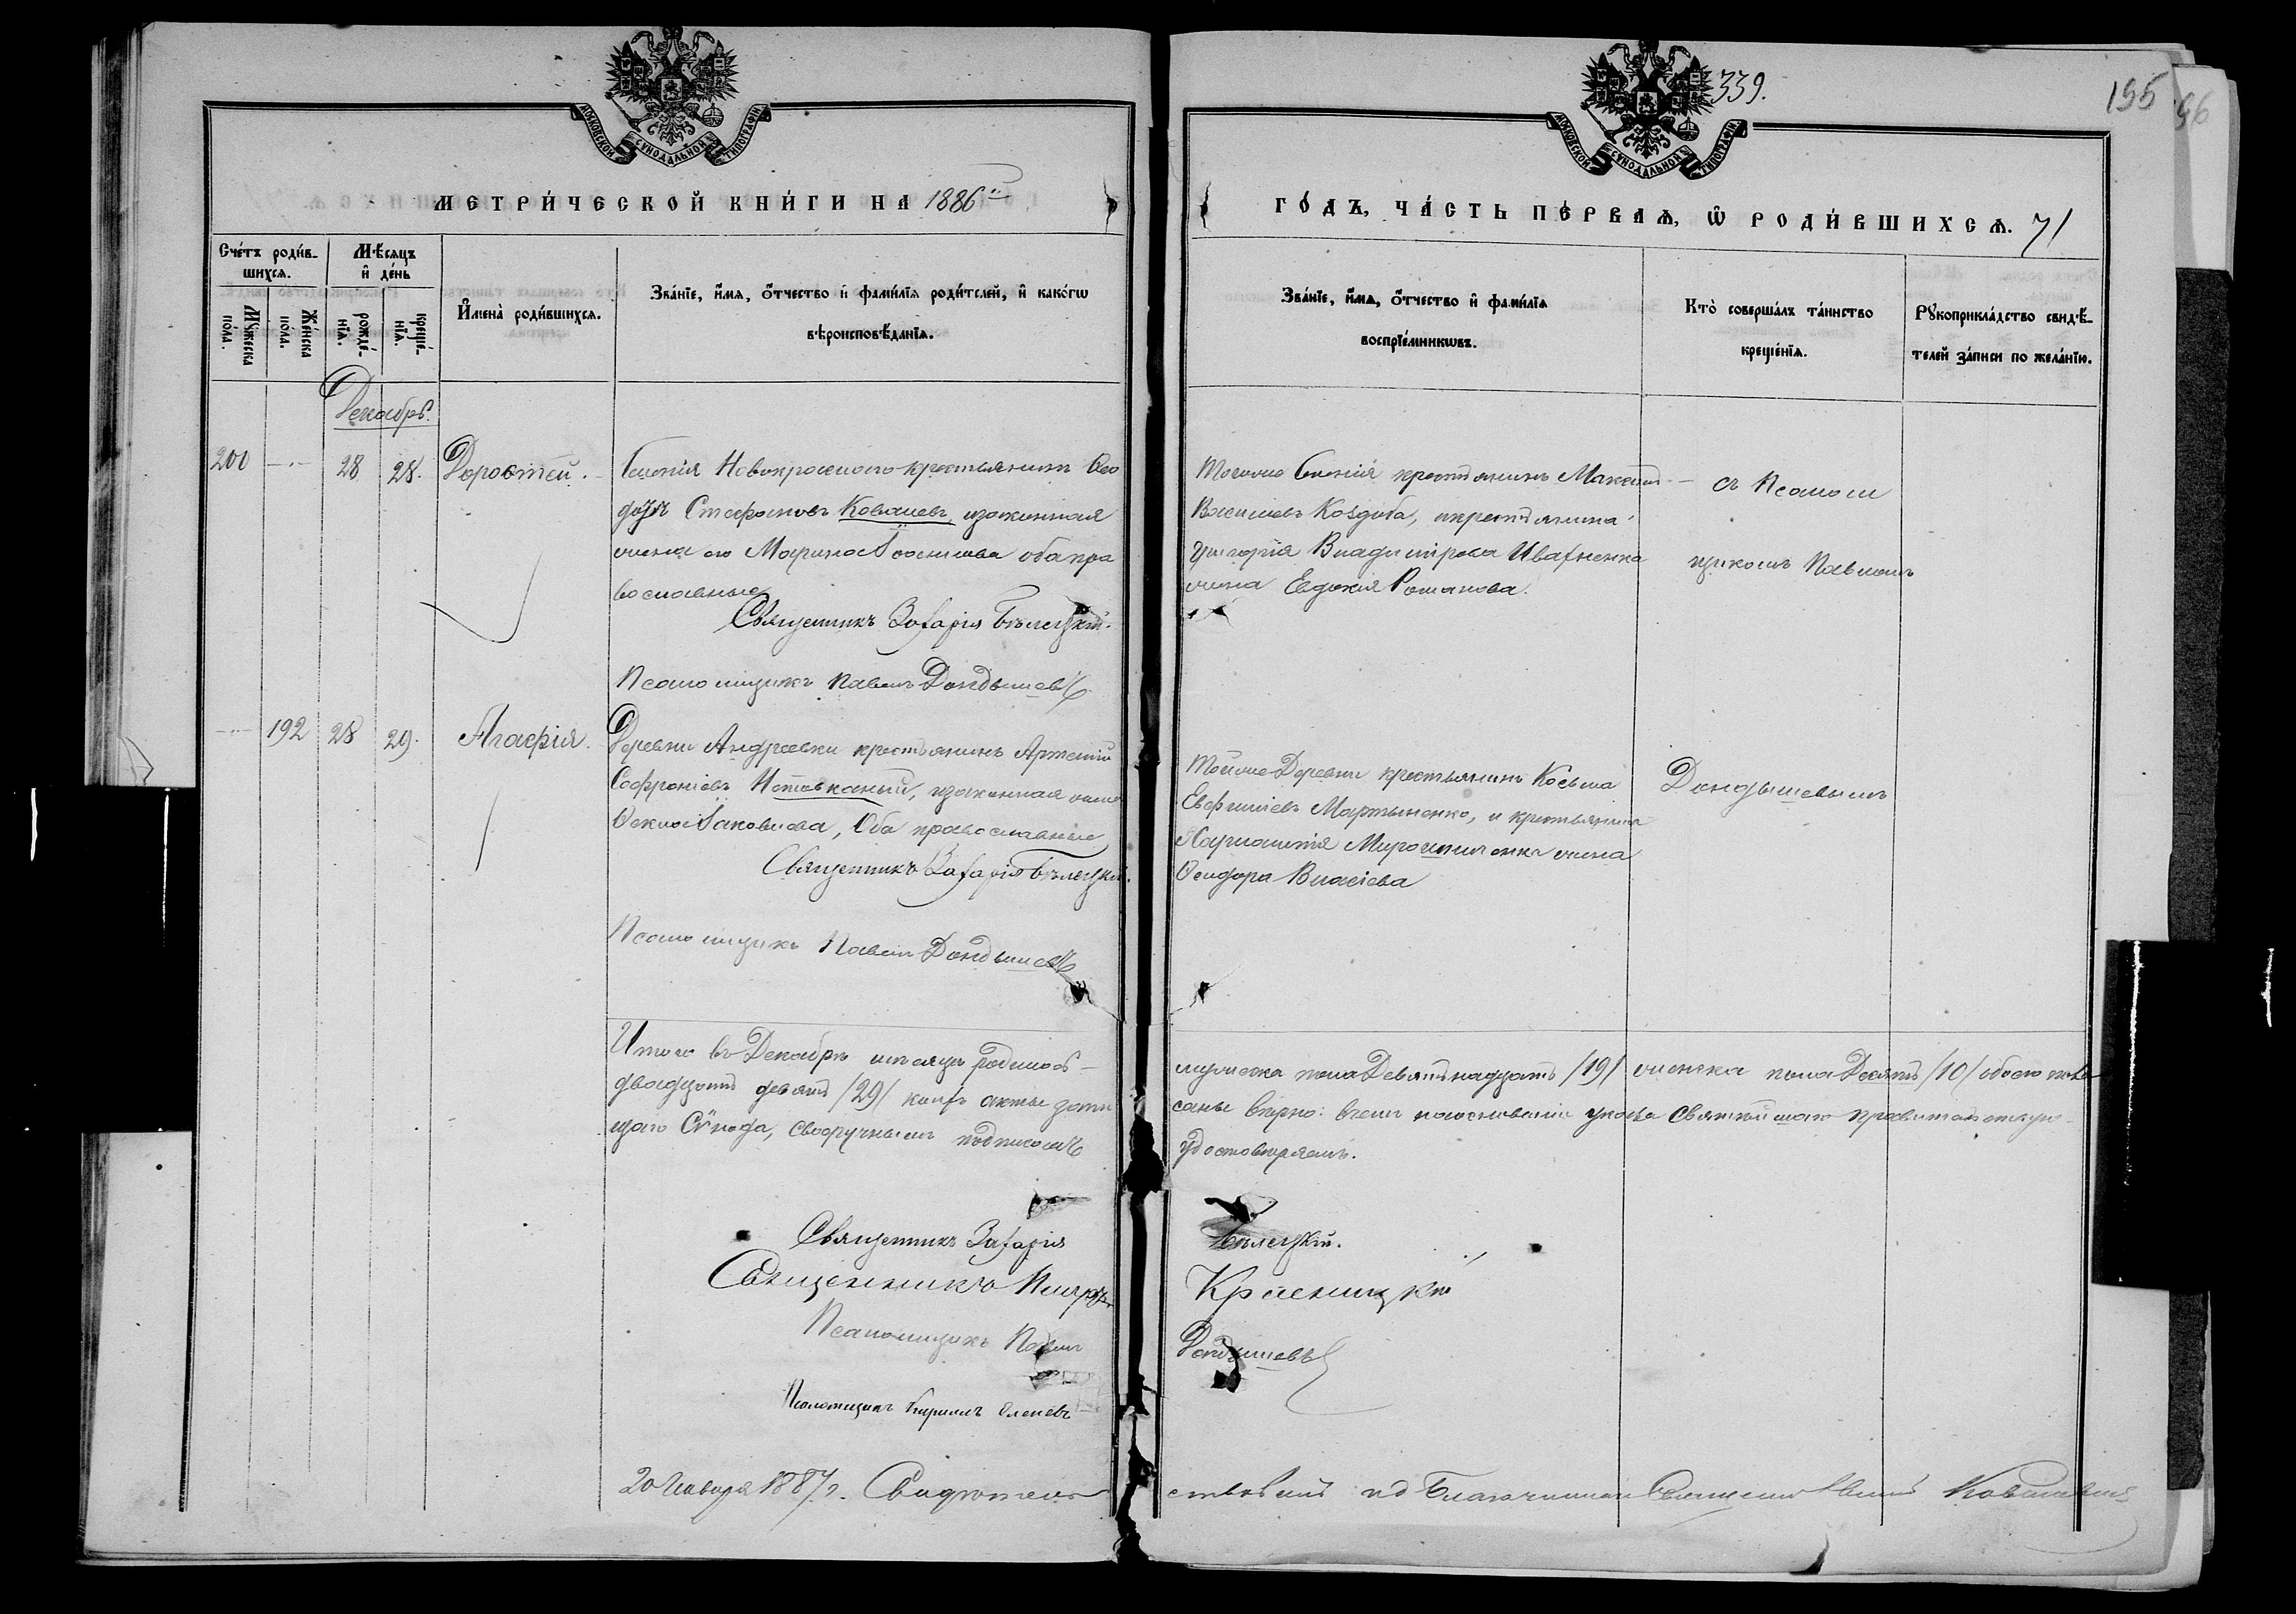 339.
195
96
МОСКОВСКОЙ СѴНОДАЛЬНОЙ ТИПОГРАФІИ
МОСКОВСКОЙ СѴНОДАЛЬНОЙ ТИПОГРАФІИ
МЕТРИ́ЧЕСКОЙ КНИ́ГИ НА 1886
ГО́ДЪ, ЧА́СТЬ ПЕ́РВАѦ, Ѡ РОДИ́ВШИХСѦ. 71
Сче́тъ роди́вшихсѧ.
Мꙋжеска по́ла.
Же́нска по́ла.
Мѣ́сѧцъ и де́нь
рожде́нїѧ.
креще́нїѧ.
Имена̀ роди́вшихсѧ.
Зва́нїе, и́мѧ, о́тчество и фами́лїѧ роди́телей, и како́гѡ
вѣроисповѣ́данїѧ.
Зва́нїе, и́мѧ, о́тчество и фами́лїѧ
воспрїе́мникѡвъ.
Кто̀ соверша́лъ та́инство
креще́нїѧ.
Рꙋкоприкла́дство свидѣ́-
телей за́писи по жела́нїю.
Декабрь.
200
28
28.
Доростей.
Селенія Новокрасного крестьянинъ Ѳео
доръ Стефановъ Ковалевъ, изаконная
жена его Марина оба пра
вославные
Священникъ Захарія Бѣлецкій.
Псаломщикъ Павелъ Дондышевъ
Тогоже Селенія крестьянинъ Максим
Васильевъ Козуба, икрестьянина
Григорія Владимірова Ивахненка
жена Евдокія Романова.
съ Псалом
щикомъ Павломъ
192
28
29.
Агафія.
Деревни Андреевки крестьянинъ Артемій
Софроніевъ изаконная жена
Ѳекла Іаковлева, Оба православные
Священникъ Захарія Бѣлецкій.
Псаломщикъ Павелъ Дондышевъ
Тойже Деревни крестьянинъ Косьма
Евфиміевъ Мартыненко, и крестьянина
Харлампія Мирошниченка жена
Ѳеодора Власіева
Дондышевымъ
Итого въ Декабрѣ мѣсяцѣ родилось
двадцать девять /29/ коихъ акты запи
щаго Сѵнода, своеручнымъ подписомъ
мужеска пола Девятьнадцать /19/ женска пола Десять /10/ обоего пола
саны вѣрно: въ чемъ наоснованіи указа Святѣйшаго Правительствую
удостовѣряемъ.
Священникъ Захарія Бѣлецкій.
Священникъ Петръ Красницкій
Псаломщикъ Павелъ Дондышевъ
Псаломщикъ Кириллъ Оленевъ
20 Января 1887 г. Свидѣтельствовалъ Благочинный Священникъ